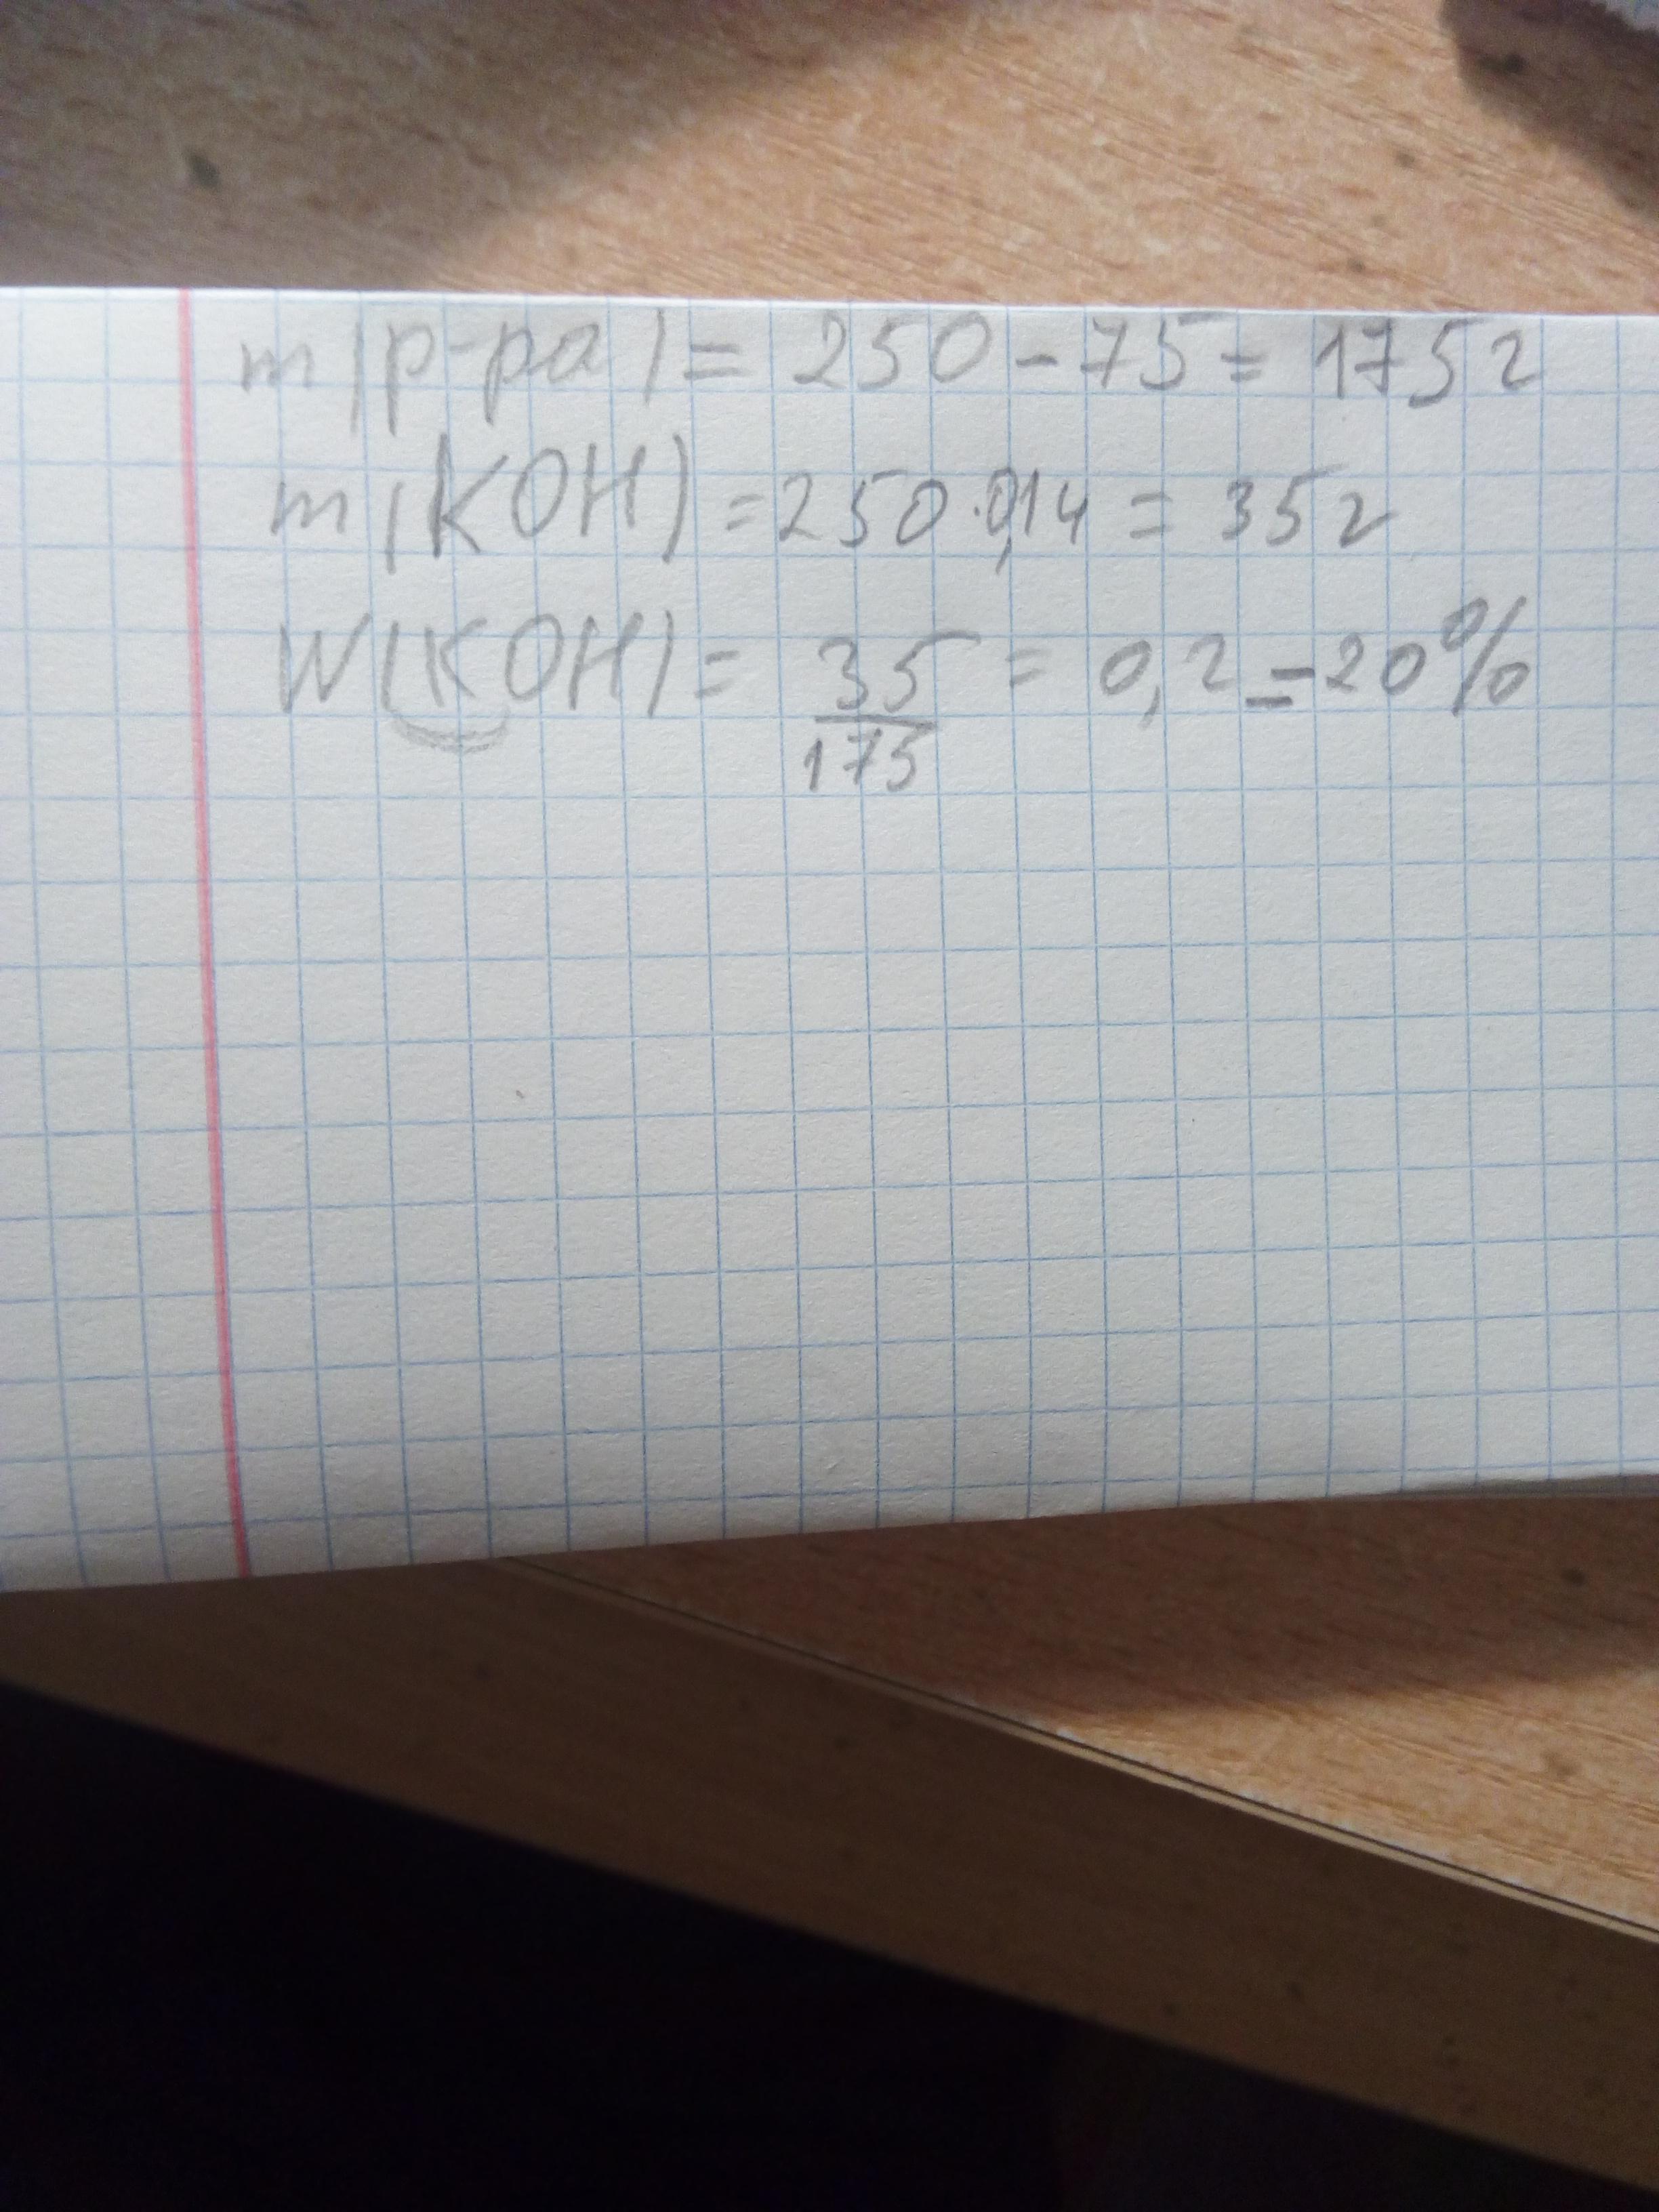 m(р-ра) = 250 - 75 = 175 г
m(KOH) = 250 · 0,14 = 35 г
W(KOH) = 35/175 = 0,2 = 20%